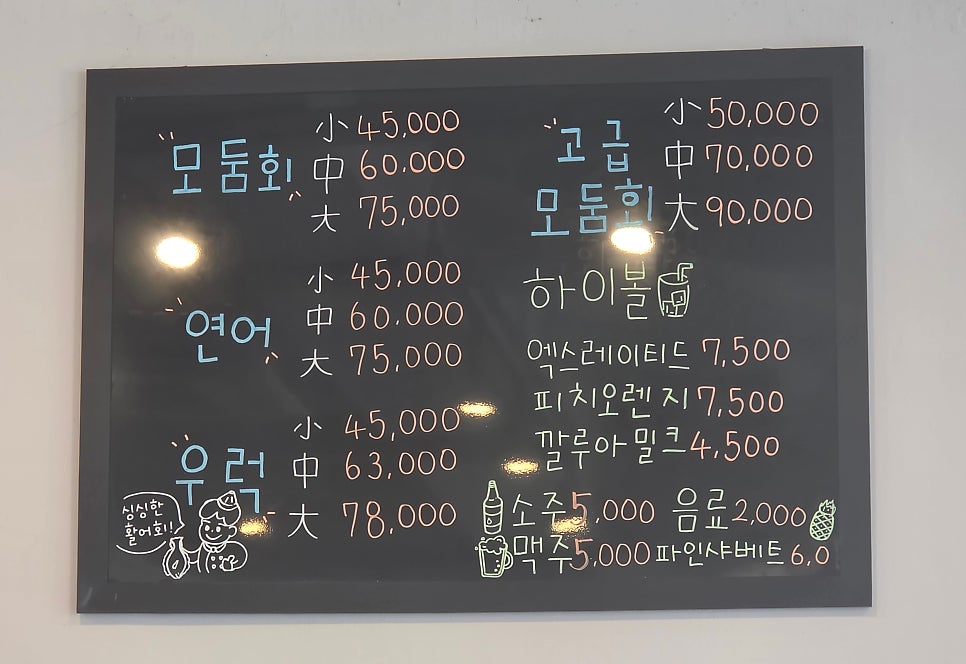 모둠회
小 45,000
中 60,000
大 75,000
연어
小 45,000
中 60,000
大 75,000
우럭
小 45,000
中 63,000
大 78,000
싱싱한
활어회!!
고급
모둠회
小 50,000
中 70,000
大 90,000
하이볼
엑스레이티드 7,500
피치오렌지 7,500
깔루아밀크 4,500
소주 5,000 음료 2,000
맥주 5,000 파인샤베트 6,0